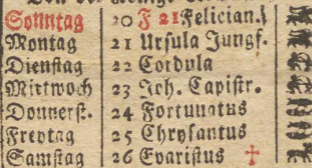 Sonntag 20 F 21 Felician.
Montag 21 Ursula Jungf.
Dienstag 22 Cordula
Mittwoch 23 Joh. Capistr.
Donnerst. 24 Fortunatus
Freytag 25 Chrysantus
Samstag 26 Evaristus ✝